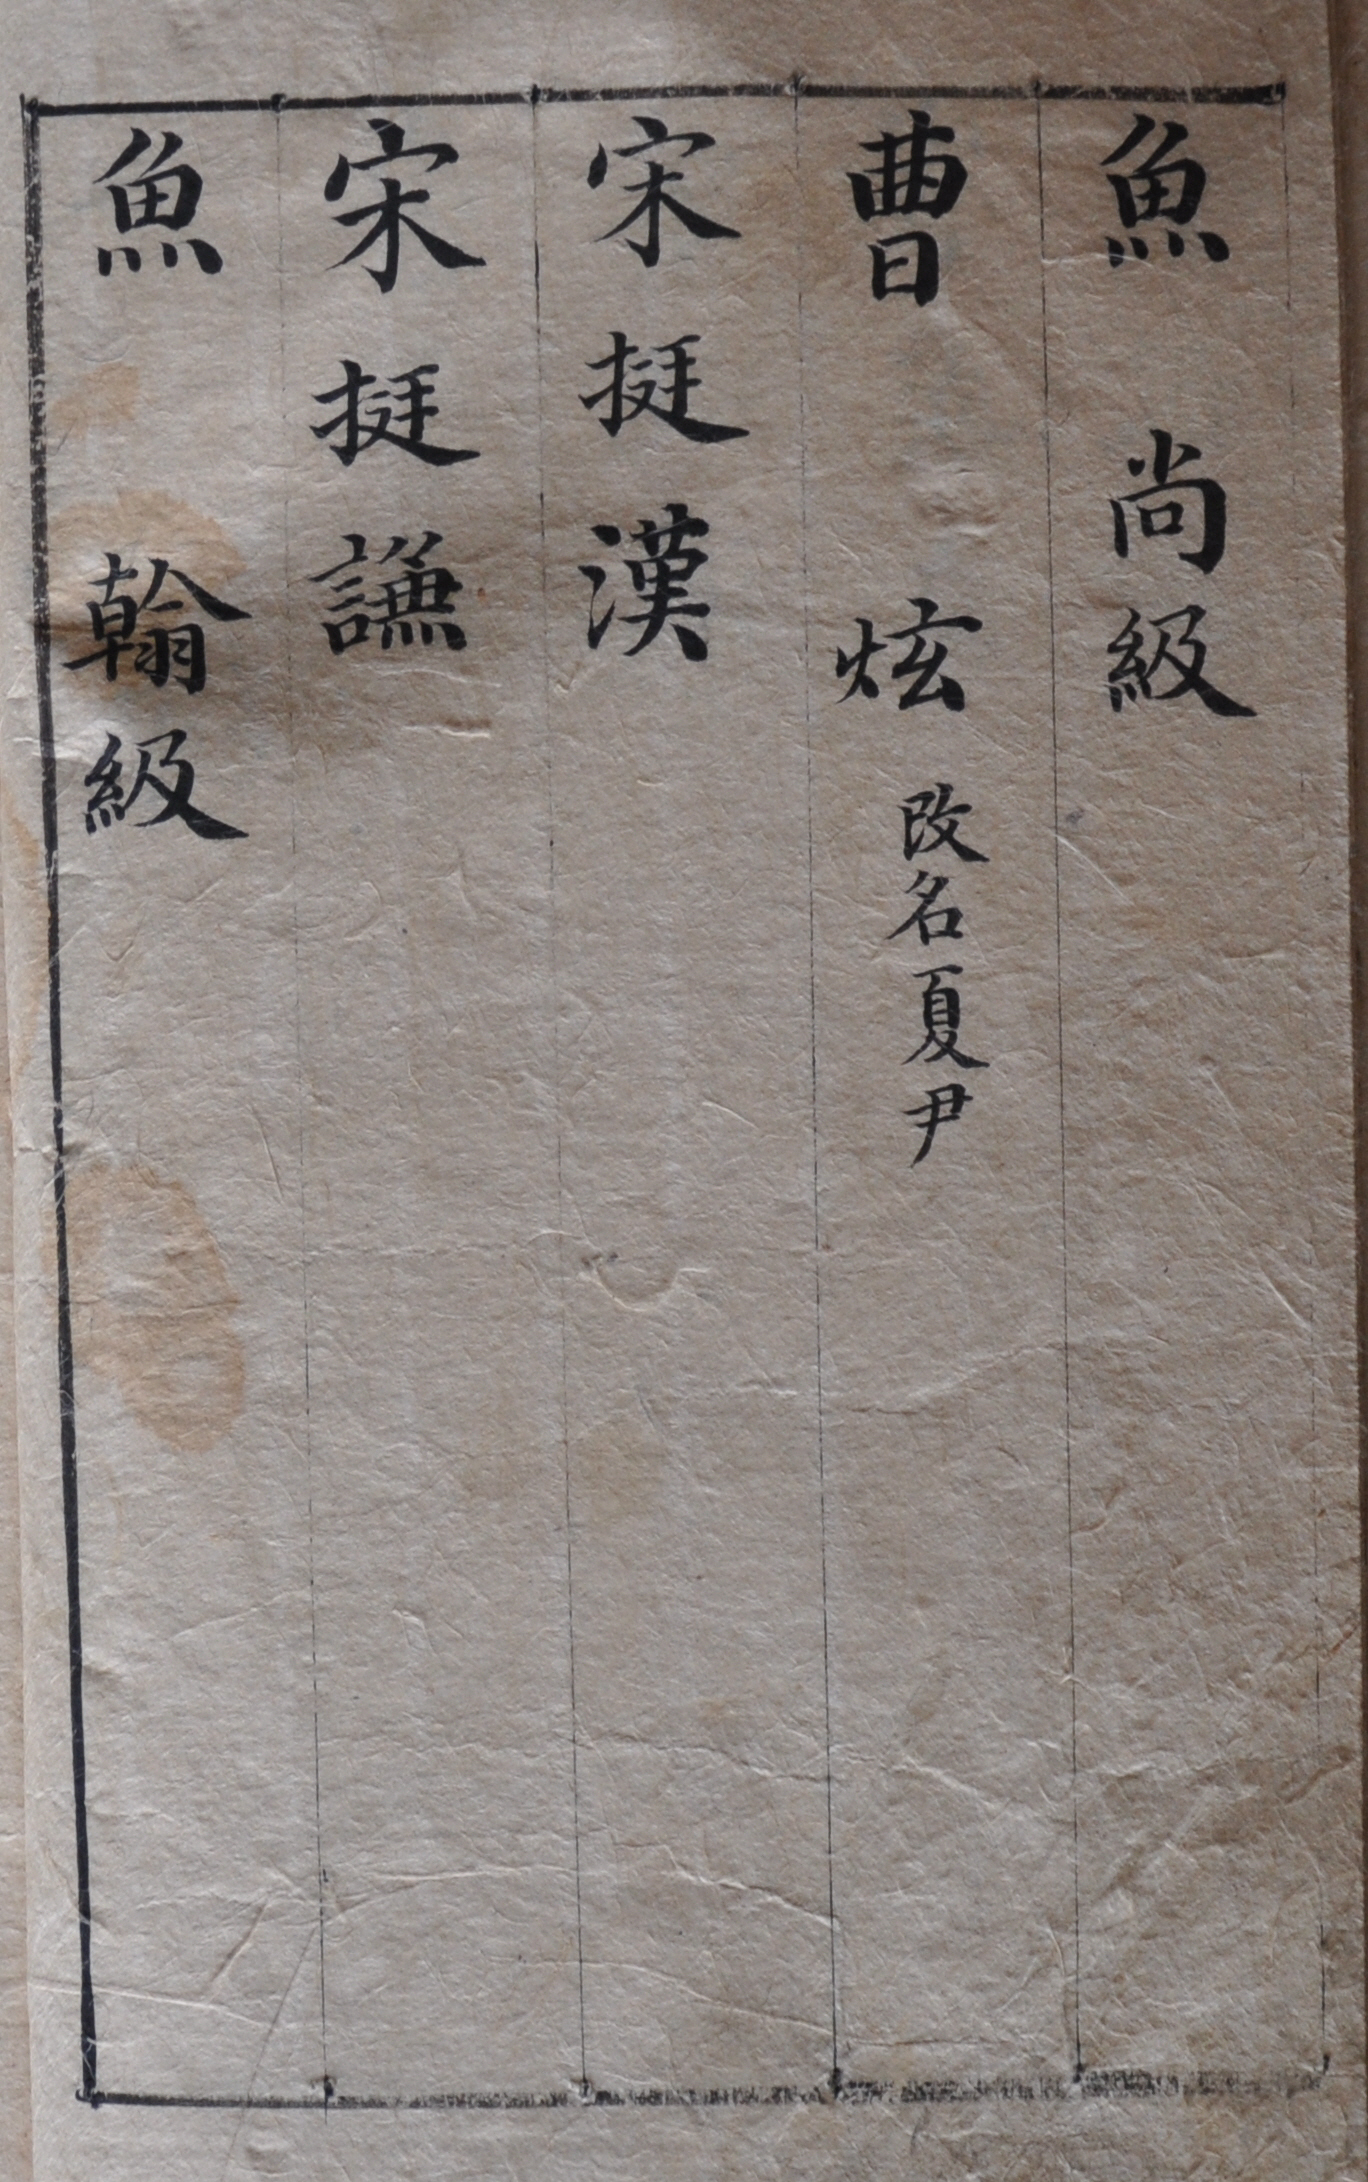 魚尚級
曺炫 改名夏尹
宋挺漢
宋挺謙
魚翰級